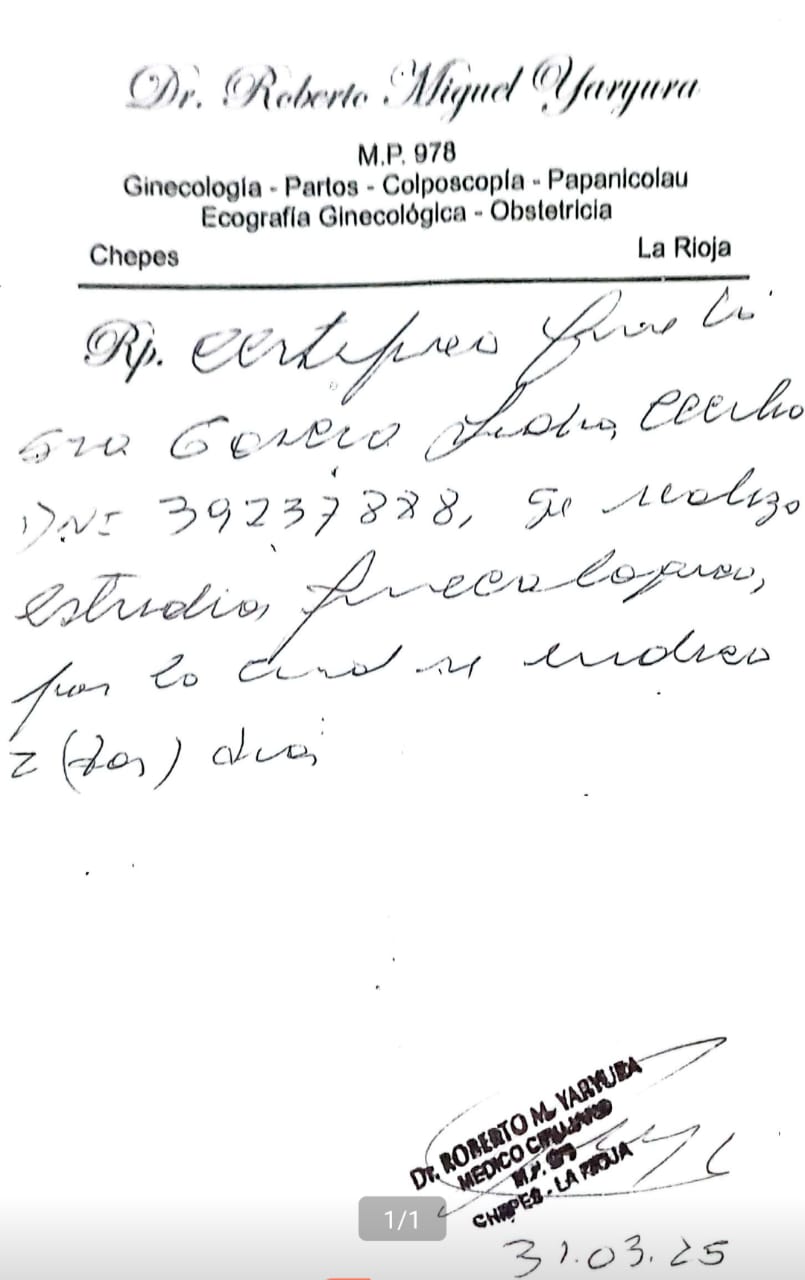 Dr. Roberto Miguel Yaryura
M.P. 978
Ginecología - Partos - Colposcopía - Papanicolau
Ecografía Ginecológica - Obstetricia
Chepes La Rioja
Rp. Certifico que la
Sra Cecilia
DNI 39237888, se realizo
estudio ginecologico,
por lo cual se indico
2 (dos) dias
Dr. ROBERTO M. YARYURA
MEDICO CIRUJANO
M.P. 97
CHEPES - LA RIOJA
1/1
31.03.25